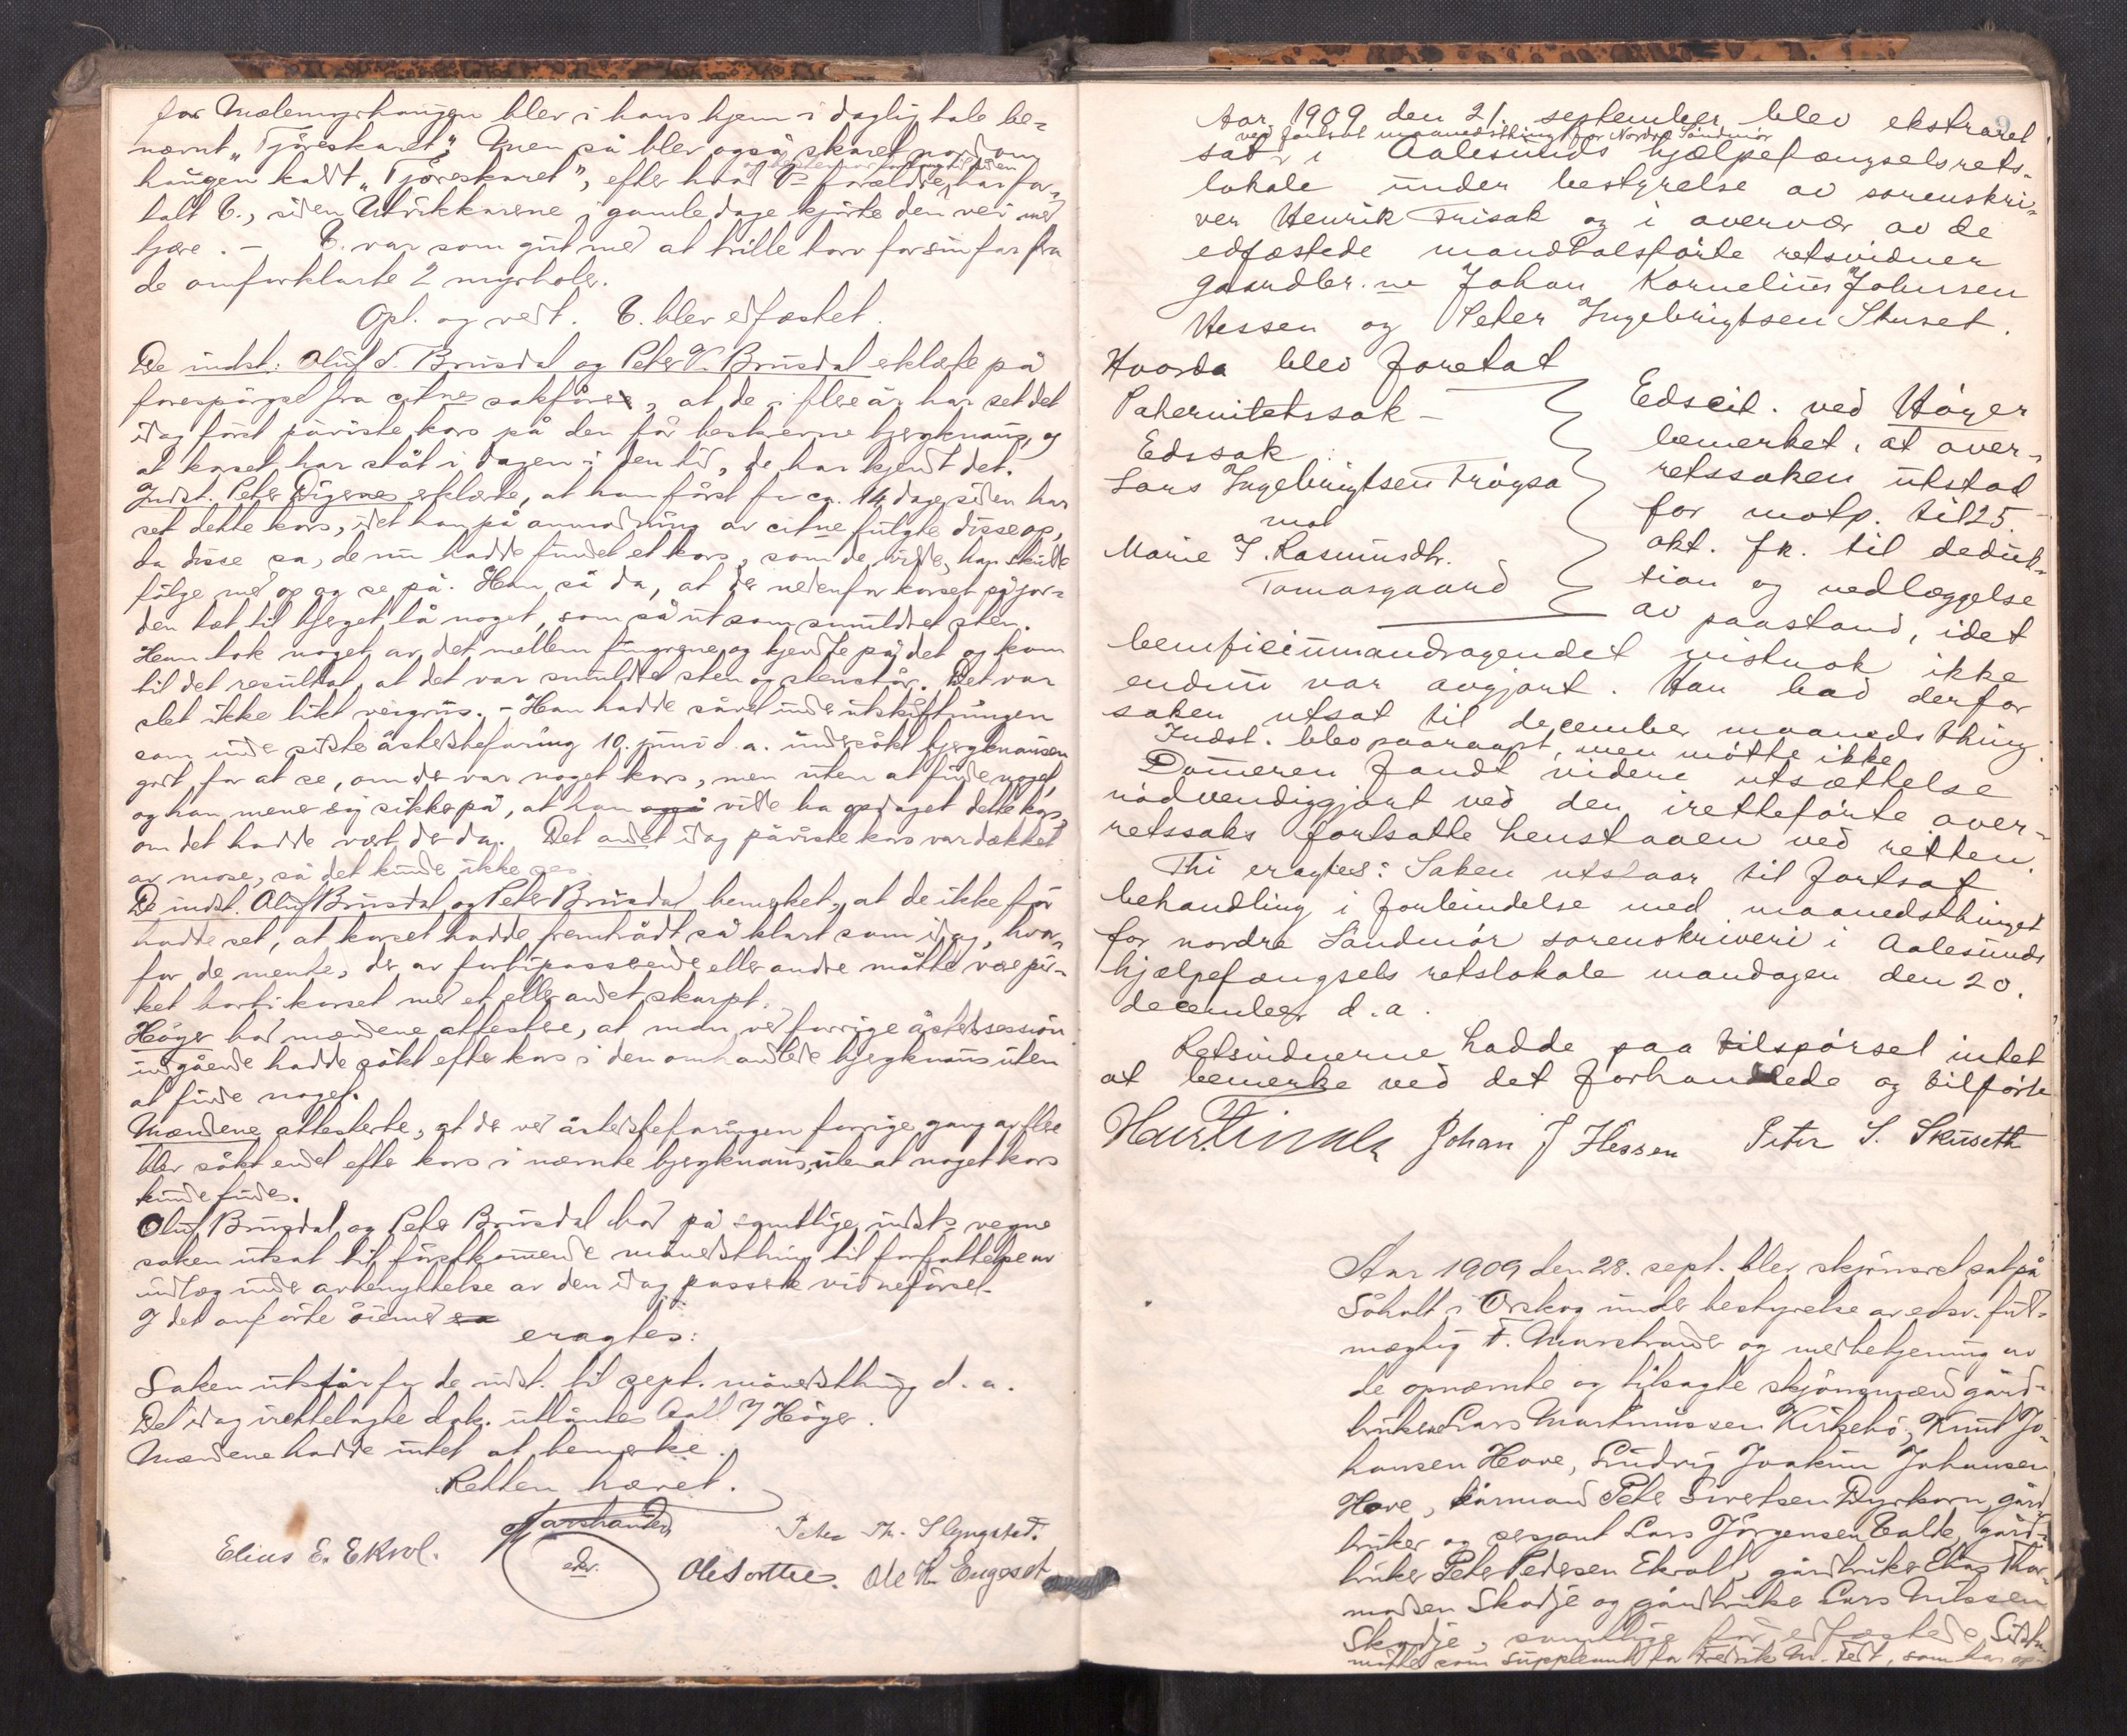 for Mælemyrhaugen blev i hans hjem i daglig tale be-
nævnt „Tjøreskaret“; Men så blev også skaret nord om
haugen kaldt „Tjøreskaret“, efter hvad V.s forældre har for-
talt V., siden Utvikkarene i gamle dage kjørte den vei med
tjære. – V. var som gut med at trille torv for sin far fra
de omforklarte 2 myrholer.
Opl. og vedt. V. blev edfæstet.
De indst: Oluf S. Brusdal og Peter V. Brusdal erklærte på
forespørgsel fra citnes sakfører, at de i flere år har set det
idag først påviste kors på den før beskrevne bjergknaus, og
at korset har ståt i dagen i den tid, de har kjendt det.
Indst. Peter Digernes erklærte, at han først for ca. 14 dage siden har
set dette kors, idet han på anmodning av citne fulgte disse op,
da disse sa, de nu hadde fundet et kors, som de vilde, han skulde
følge med op og se på. Han så da, at der nedenfor korset på jor-
den tæt til bjerget lå noget, som så ut som smuldret sten.
Han tok noget av det mellem fingrene og kjendte på det og kom
til det resultat, at det var smuldret sten og stenstøv. Det var
slet ikke likt veigrus. – Han hadde såvel under utskiftningen
som under sidste åstedsbefaring 10. juni d. a. undersøkt bjergknausen
godt for at se, om der var noget kors, men uten at finde noget,
og han mener sig sikker på, at han også vilde ha opdaget dette kors,
om det hadde vært der da. Det andet idag påviste kors var dækket
av mose, så det kunde ikke sees.
De indst. Oluf Brusdal og Peter Brusdal bemerket, at de ikke før
hadde set, at korset hadde fremtrådt så klart som idag, hvor-
for de mente, der av forbipasserende eller andre måtte være pir-
ket bort i korset med et eller andet skarpt.
Høyer bad mændene attestere, at man ved forrige åstedssession
indgående hadde søkt efter kors i den omhandlede bjergknaus uten
at finde noget.
Mændene attesterte, at der ved åstedsbefaringen forrige gang av flere
blev søkt endel efter kors i nævnte bjergknaus, uten at noget kors
kunde findes.
Oluf Brusdal og Peter Brusdal bad på samtlige indsts vegne
saken utsat til førstkommende månedsthing til forfattelse av
indlæg under avbenyttelse av den idag passerte vidneførsel.
I det anførte øiemed
eragtes:
Saken utstår for de indst. til sept. månedsthing d. a.
Det idag irettelagte dok. utlåntes Aall & Høyer.
Mændene hadde intet at bemerke.
Retten hævet.
Marstrander
edsv.
Peter Th. Slyngstad.
Elias E. Ekrol. Ole Sortte. Ole K. Engeset
Aar 1909 den 21. september blev ekstraret
ved fortsat maanedsthing for Nordre Søndmør
sat i Aalesunds hjælpefængselsrets-
lokale under bestyrelse av sorenskri-
ver Henrik Frisak og i overvær av de
edfæstede mandtalsførte retsvidner
gaardbr.ne Johan Kornelius Johnsen
Hessen og Peter Ingebrigtsen Skuset.
Hvorda blev foretat
Paternitetssak –
Edssak:
Lars Ingebrigtsen Frøysa
mot
Marie J. Rasmusdtr.
Tomasgaard
Edscit. ved Høyer
bemerket, at over-
retssaken utstod
for motp. til 25.
okt. fk. til deduk-
tion og nedlæggelse
av paastand, idet
beneficiumandragendet vistnok ikke
endnu var avgjort. Han bad derfor
saken utsat til december maanedsthing.
Indst. blev paaraapt, men møtte ikke
Dommeren fandt videre utsættelse
nødvendiggjort ved den iretteførte over-
retssaks fortsatte henstaaen ved retten.
Thi eragtes: Saken utstaar til fortsat
behandling i forbindelse med maanedsthinget
for nordre Søndmør sorenskriveri i Aalesunds
hjælpefængsels retslokale mandagen den 20.
december d. a.
Retsvidnerne hadde paa tilspørsel intet
at bemerke ved det forhandlede og tilførte
Johan J Hessen Peter I. Skuseth
Aar 1909 den 28. sept. blev skjønsret sat på
Søholt i Ørskog under bestyrelse av edsv. fuld-
mægtig F. Marstrander og med betjening av
de opnævnte og tilsagte skjønsmænd gård-
brukerne Lars Martinussen Kirkebø, Knut Jo-
hansen Hove, Ludvig Joakim Johansen
Hove, lensmand Peter Sivertsen Dyrkorn, gård-
bruker og sersjant Lars Jørgensen Valde, gård-
bruker Peter Pedersen Ekroll, gårdbruker Elias Thor-
modsen Skodje og gårdbruker Lars Nilssen
Skodje, samtlige før edfæstede. Sidstn.
møtte som supplerant for Fredrik M. , som har op-